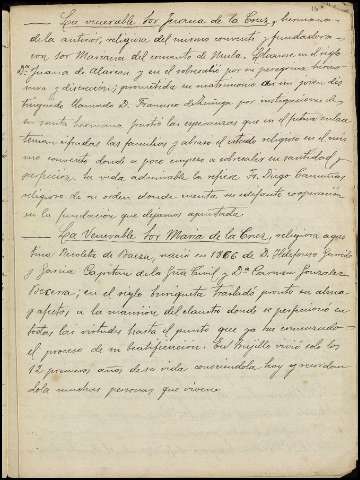 La venerable Sor Juana de la Cruz, hermana
de la anterior, religiosa del mismo convento y fundadora
con Sor Mariana del convento de Llamóse en el siglo
Dª Juana de Alarcon y en él sobresalió por su peregrina hermo
sura y discrecion; prometida en matrimonio a un joven dis
tinguido llamado D. Francisco de por instigaciones de
su santa hermana frustró las esperanzas que en el futuro enlace
tenian cifradas las familias y abrazó el estado religioso en el mis
mo convento donde a poco empezo a sobresalir en santidad y
perfeccion. Su vida admirable la refiere Fr. Diego
religioso de su orden donde cuenta su cooperación
en la fundacion que dejamos apuntada.
La Venerable Sor Maria de la Cruz, religiosa agus
tina Recoleta de Baeza, nació en 1606 de D. Ildefonso Garrido
y Garcia Capitan de la Grta Civil, y Dª Carmen Gonzalez
Becerra; en el siglo Enriqueta trasladó pronto su alma
y afectos a la mansión del claustro donde se perfecciono en
todas las virtudes hasta el punto que ya ha comenzado
el proceso de su beatificación. En Trujillo vivió solo los
12 primeros años de su vida conociendola hoy y recordan
dola muchas personas que viven.